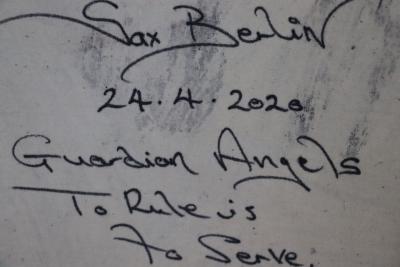 Sax Berlin
24.4.2020
Guardian Angels
To Rule is
To Serve.